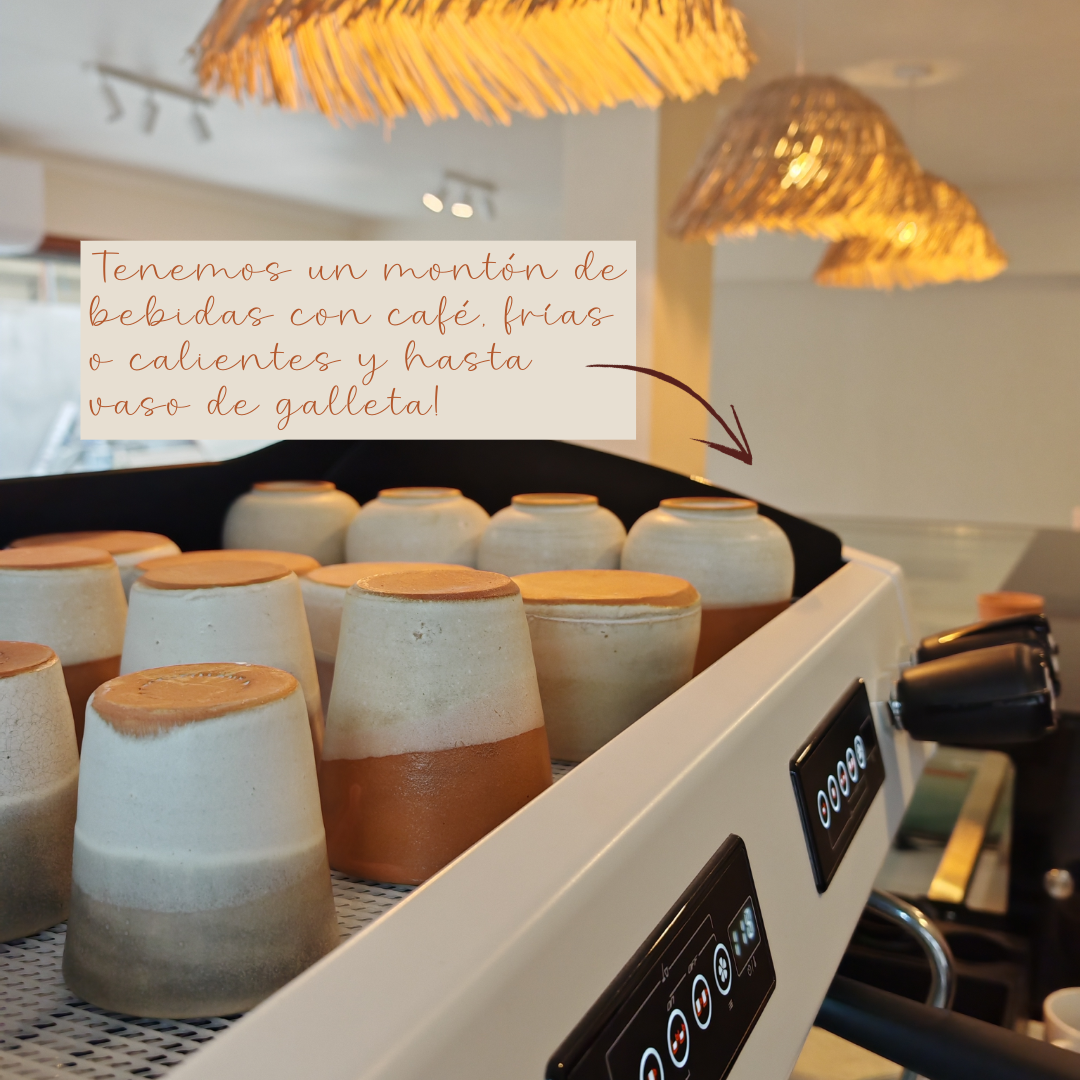 Tenemos un montón de
bebidas con café, frías
o calientes y hasta
vaso de galleta!